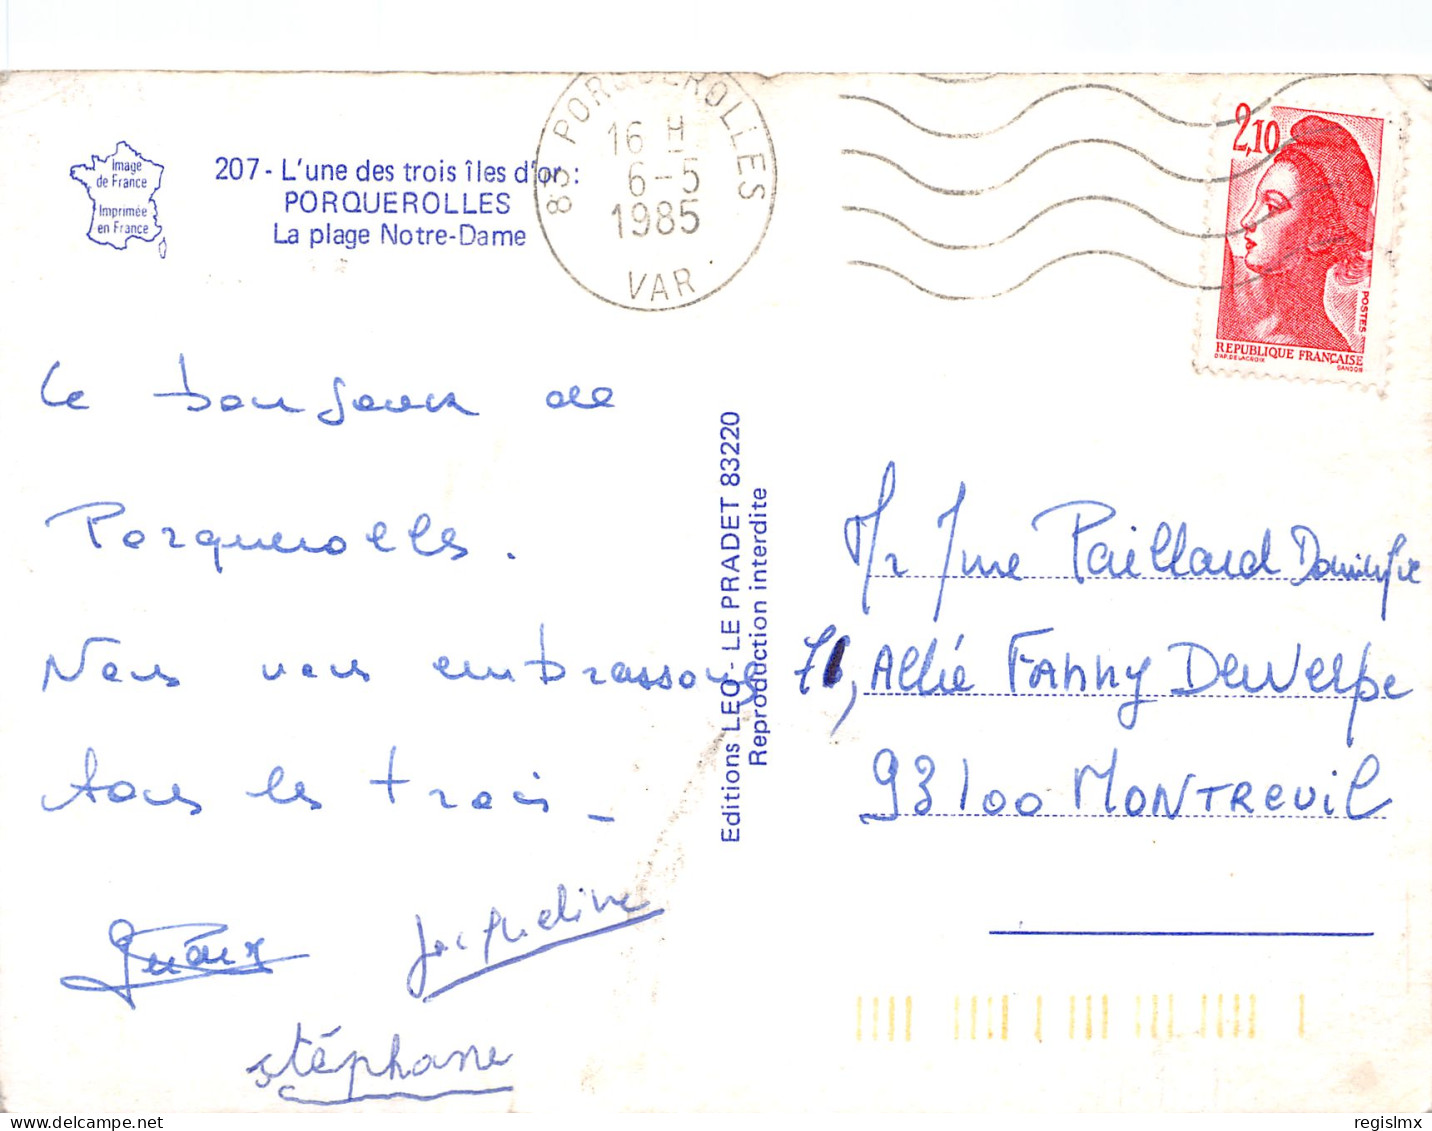 Image
de France
Imprimée
en France
207 - L'une des trois îles d'or :
PORQUEROLLES
La plage Notre-Dame
83 PORQUEROLLES
16 H
6-5
1985
VAR
2,10
POSTES
REPUBLIQUE FRANÇAISE
D'AP. DELACROIX
GANDON
Le bonjour de
Porquerolles.
Nous vous embrassons
tous les trois_
Jacqueline
Stéphane
Editions LEO - LE PRADET 83220
Reproduction interdite
Mr Mme Paillard Dominique
71, Allée FANNY DEWERPE
93100 MONTREUIL
regislmx